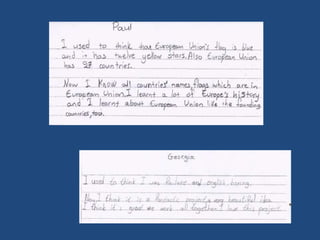 Paul
I used to think that European Union's flag is blue
and it has twelve yellow stars. Also European Union
has 27 countries.
Now I know all countries' names, flags which are in
European Union. I learnt a lot of Europe's history
and I learnt about European Union like the founding
countries, too.
Georgia
I used to think I was and english boring.
Now I think it is a fantastic project, a very beautiful idea
I think it is good we work all together. I love this project.